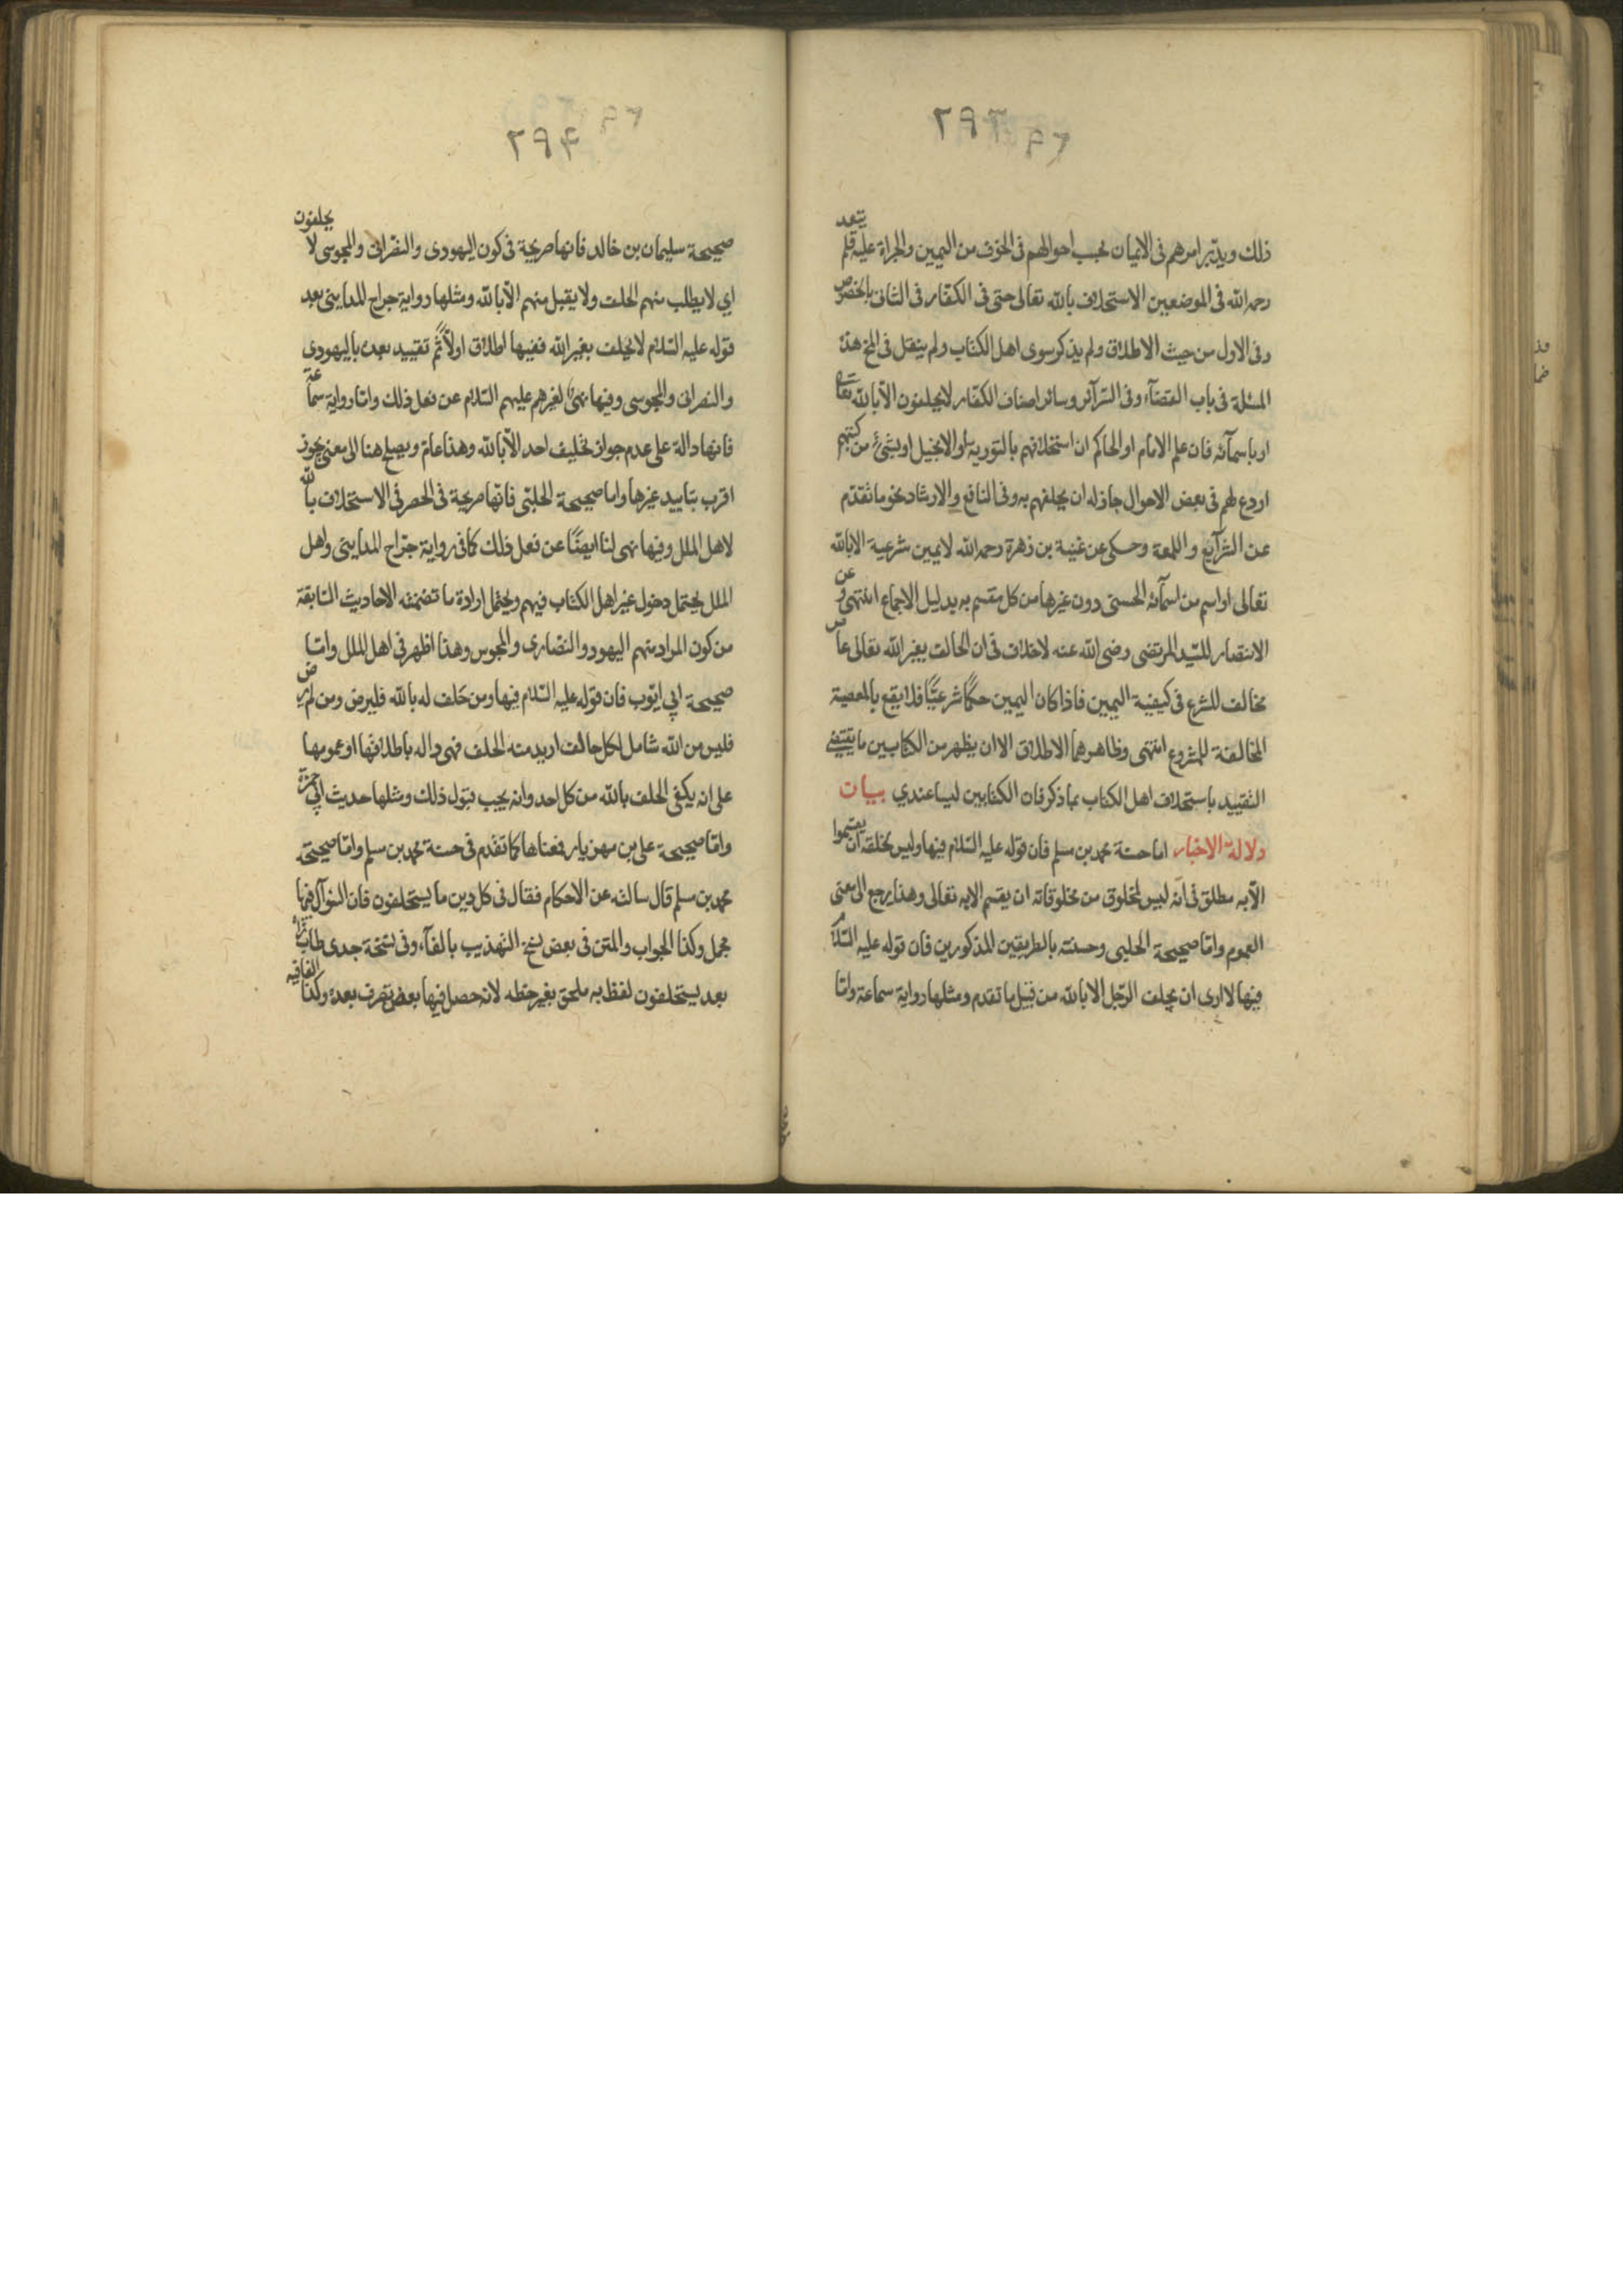 ۲۹۳
ذلك ويدبّر امرهم فى الايمان بحسب احوالهم فى الخوف من اليمين والجراة عليه فلم
رحمه الله فى الموضعين الاستحلاف بالله تعالى حتى فى الكفار فى الثانى بالخصوص
وفى الاول من حيث الاطلاق ولم يذكر سوى اهل الكتاب ولم ينقل فى المخ هذه
المسئلة فى باب القضآء وفى السرآئر وسائر اصناف الكفار لا يحلفون الّا بالله تعالى
او باسمآئه فان علم الامام او الحاكم ان استحلافهم بالتورية او الانجيل او بشئ من كتبهم
اردع لهم فى بعض الاحوال جاز له ان يحلفهم به وفى النافع والارشاد نحو ما تقدّم
عن الشرآئع واللمعة وحكى عن غنية بن زهرة رحمه الله لا يمين شرعية الا بالله
تعالى او اسم من اسمآئه الحسنى دون غيرها من كل مقسم به بدليل الاجماع انتهى وعن
الانتصار للسّيد المرتضى رضى الله عنه لا خلاف فى ان الحالف بغير الله تعالى عاص
مخالف للشرع فى كيفية اليمين فاذا كان اليمين حكمًا شرعيًّا فلا يقع بالمعصية
المخالفة للمشروع انتهى وظاهرهما الاطلاق الا ان يظهر من الكتابين ما يقتضى
التقييد باستحلاف اهل الكتاب بما ذكر فان الكتابين ليسا عندي بيان
دلالة الاخبار اما حسنة محمد بن مسلم فان قوله عليه السّلام فيها وليس لخلقه ان يقسموا
الّا به مطلق فى انه ليس لمخلوق من مخلوقاته ان يقسم الا به تعالى وهذا يرجع الى معنى
العموم وامّا صحيحة الحلبى وحسنته بالطريقين المذكورين فان قوله عليه السّلام
فيها لا ارى ان يحلف الرّجل الا بالله من قبيل ما تقدم ومثلها رواية سماعة وامّا
۲۹۴
صحيحة سليمان بن خالد فانها صريحة فى كون اليهودى والنصرانى والمجوسى لا يحلفون
اي لا يطلب منهم الحلف ولا يقبل منهم الّا بالله ومثلها رواية جراح المداينى بعد
قوله عليه السّلام لا يحلف بغير الله ففيها اطلاق اولاً ثم تقييد بعده باليهودى
والنصرانى والمجوسى وفيها نهى لغيرهم عليهم السّلام عن فعل ذلك وامّا رواية سماعة
فانها دالة على عدم جواز تحليف احد الّا بالله وهذا عام ويصلح هنا الى معنى يجوز
اقرب بتاييد غيرها واما صحيحة الحلبى فانّها صريحة فى الحصر فى الاستحلاف بالله
لاهل الملل وفيها نهى لنا ايضًا عن فعل ذلك كما فى رواية جرّاح المداينى واهل
الملل يحتمل دخول غير اهل الكتاب فيهم ويحتمل ارادة ما تضمنته الاحاديث السّابقة
من كون المراد منهم اليهود والنصارى والمجوس وهذا اظهر فى اهل الملل وامّا
صحيحة ابي ايّوب فان قوله عليه السّلام فيها ومن حَلف له بالله فليرض ومن لم يرض
فليس من الله شامل لكل حالف اريد منه الحلف فهى داله باطلاقها او عمومها
على انه يكفى الحلف بالله من كل احد وانه يجب قبول ذلك ومثلها حديث ابي حمزة
وامّا صحيحة على بن مهزيار فمعناها كما تقدم فى حسنة محمد بن مسلم وامّا صحيحة
محمد بن مسلم قال سالته عن الاحكام فقال فى كل دين ما يستحلفون فان السّوآل فيها
مجمل وكذا الجواب والمتن فى بعض نسخ التهذيب بالفآء وفى نسخة جدى طاب ثراه
بعد يستحلفون لفظ به ملحق بغير خطه لانه حصل فيها بعض تصرف بعده وكذا القافيه